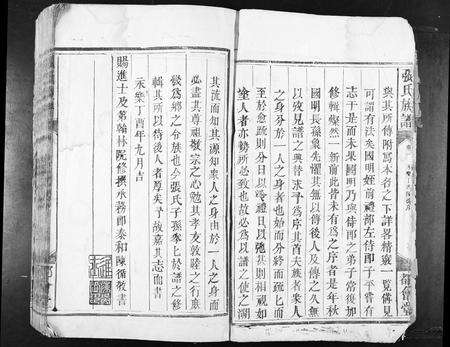 與其所傳附寫本者之下詳畧精寔一覽俱見
可謂有法矣國明姪前禮部左侍郎子平嘗有
志于是而未果國明乃與侍郎之弟子常復加
修輯燦然一新前此皆未有為之序者是年秋
國明長孫彙先懼其無以侍後人及傳之久無
以攷見譜之興替求予為序其首夫族者衆人
之身分於一人之身者也始而分終而疏七而
至於愈疏則分日以
禮日以
其則相視如
塗人者亦勢所必致也故必為以譜之使之溯
其流而知其源知衆人之身由於一人之身而
必盡其尊祖敬宗之心勉其孝友敦睦之行應
後為鄉之分族也今張氏子孫
於譜之修
輯其所以待後人者厚矣予故嘉其志而書
永樂丁酉年九月吉
賜進士及第翰林院修撰承務郎泰和陳循敬書
張氏族譜